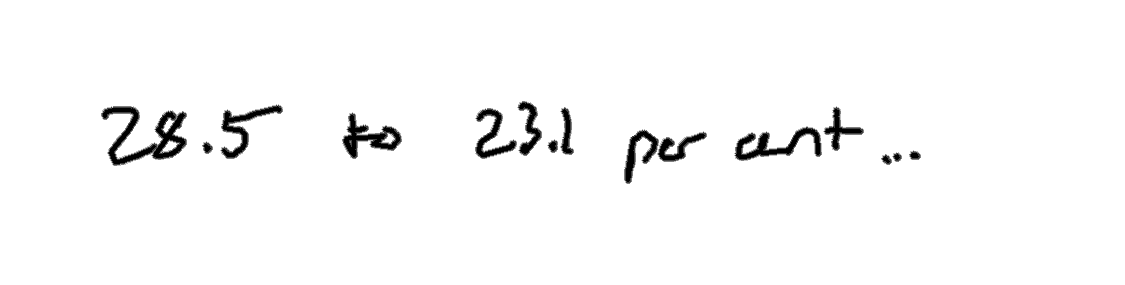 28.5 to 23.1 per cent...